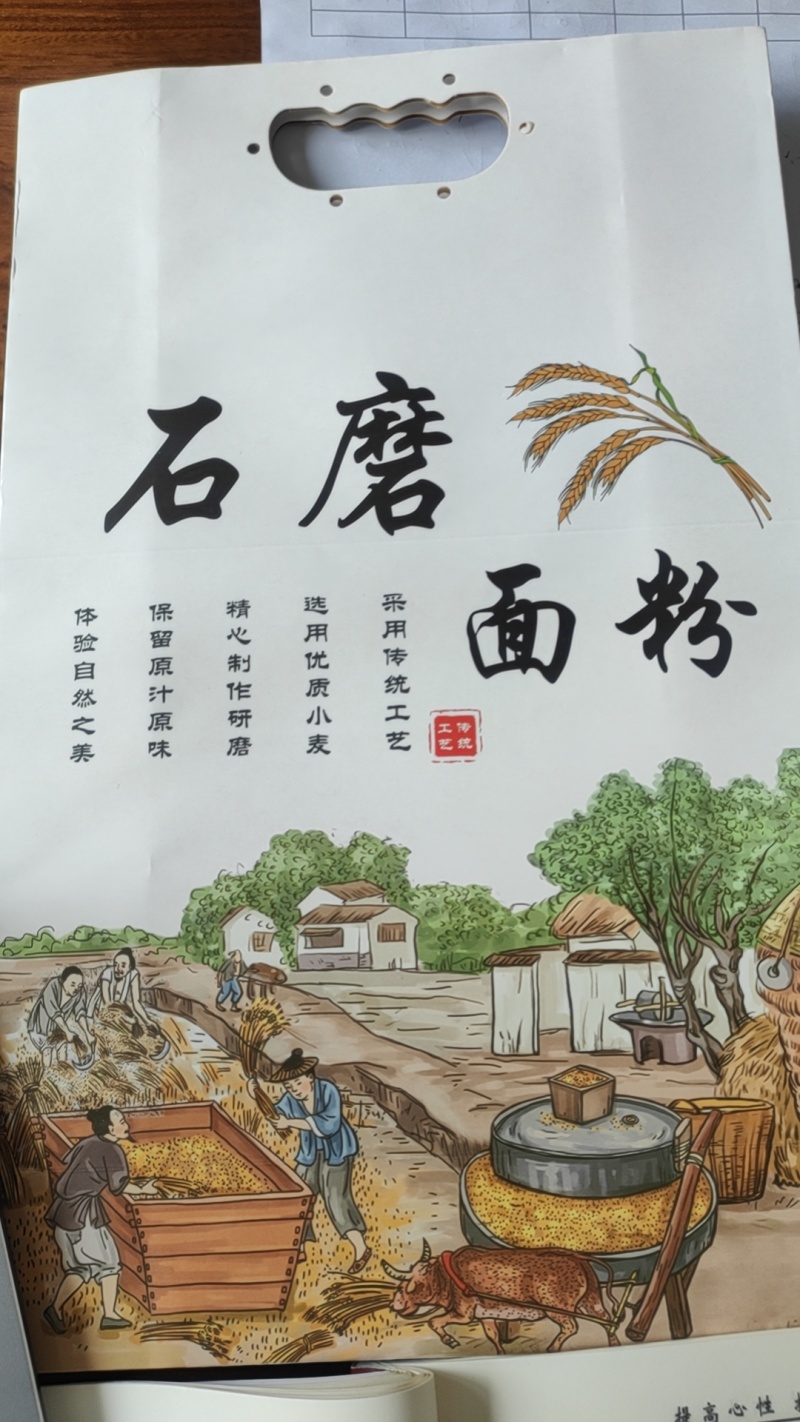 石磨
面粉
采用传统工艺
选用优质小麦
精心制作研磨
保留原汁原味
体验自然之美
传统
工艺
提高心性